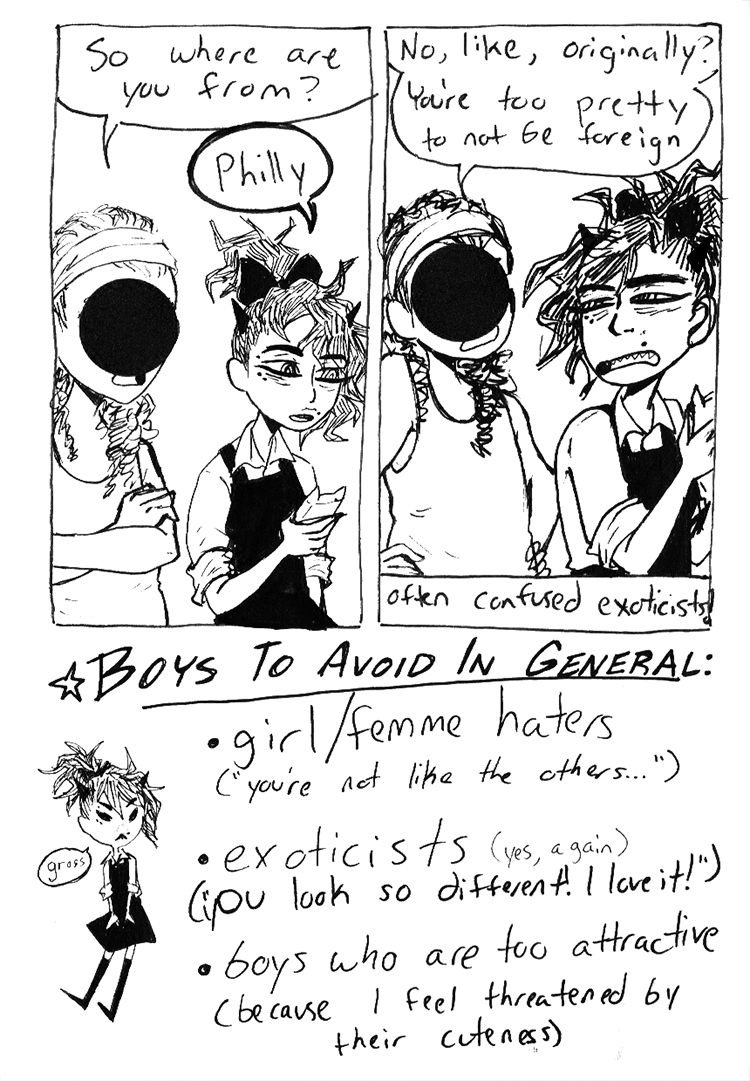 So where are
you from?
Philly
No, like, originally?
You're too pretty
to not be foreign
often confused exoticists!
☆BOYS TO AVOID IN GENERAL:
• girl/femme haters
("you're not like the others...")
gross
• exoticists (yes, again)
("you look so different! I love it!")
• boys who are too attractive
(because I feel threatened by
their cuteness)